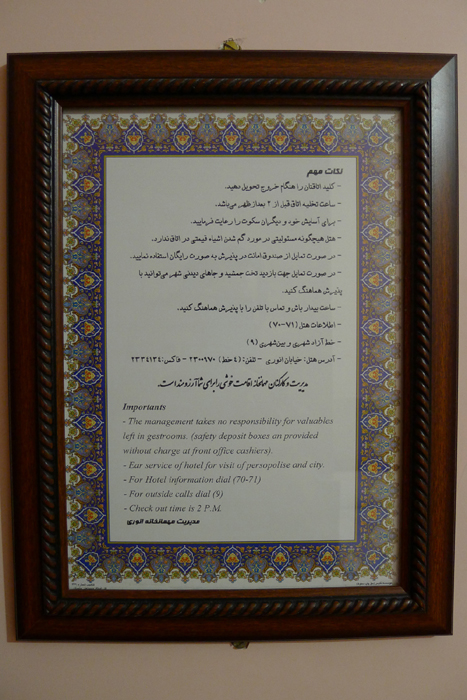 نکات مهم
- کلید اتاقتان را هنگام خروج تحویل دهید.
- ساعت تخلیه اتاق قبل از ۲ بعدازظهر می‌باشد.
- برای آسایش خود و دیگران سکوت را رعایت فرمایید.
- هتل هیچگونه مسئولیتی در مورد گم شدن اشیاء قیمتی در اتاق ندارد.
- در صورت تمایل از صندوق امانت در پذیرش به صورت رایگان استفاده نمایید.
- در صورت تمایل جهت بازدید تخت جمشید و جاهای دیدنی شهر می‌توانید با
پذیرش هماهنگ کنید.
- ساعت بیدار باش و تماس با تلفن را با پذیرش هماهنگ کنید.
- اطلاعات هتل (۷۱-۷۰)
- خط آزاد شهری و بین‌شهری (۹)
- آدرس هتل: خیابان انوری - تلفن: (۴ خط) ۲۳۰۰۹۷۰ - فاکس: ۲۳۳۴۱۳۴
مدیریت و کارکنان مهمانخانه اقامت خوشی را برای شما آرزومند است.
Importants
- The management takes no responsibility for valuables
left in gestrooms. (safety deposit boxes an provided
without charge at front office cashiers).
- Ear service of hotel for visit of persopolise and city.
- For Hotel information dial (70-71)
- For outside calls dial (9)
- Check out time is 2 P.M.
مدیریت مهمانخانه انوری